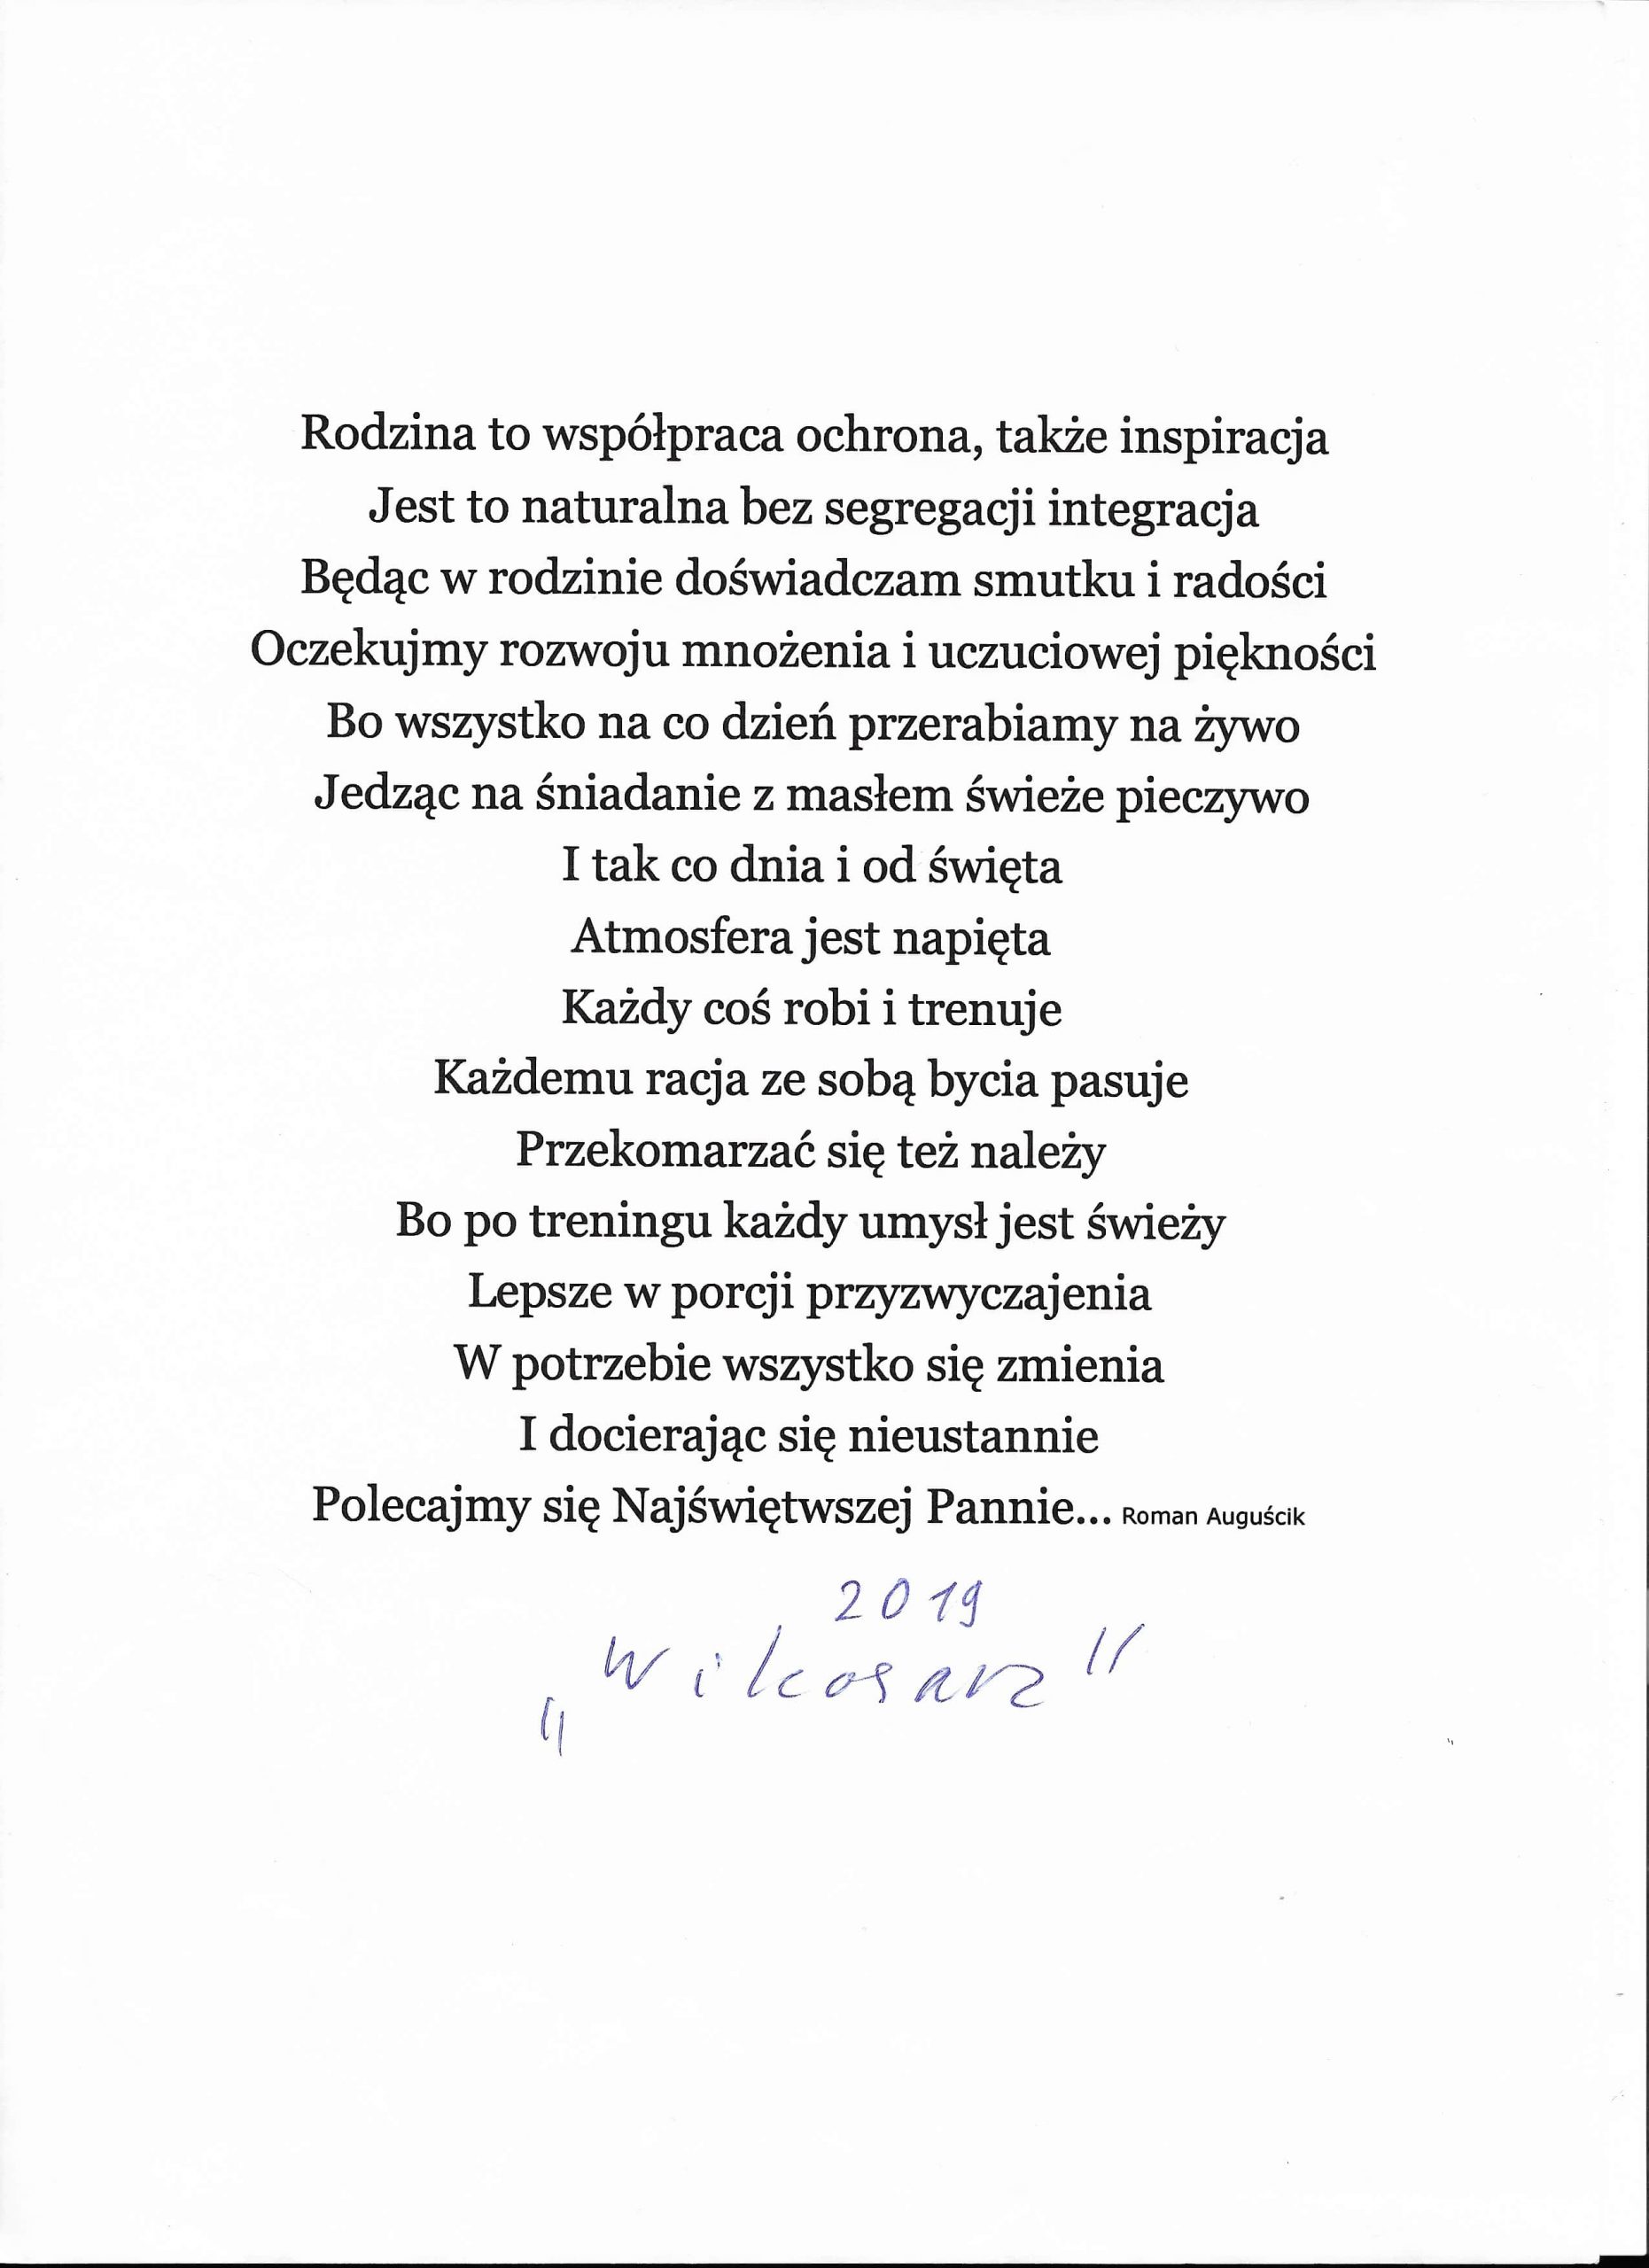 Rodzina to współpraca ochrona, także inspiracja
Jest to naturalna bez segregacji integracja
Będąc w rodzinie doświadczam smutku i radości
Oczekujmy rozwoju mnożenia i uczuciowej piękności
Bo wszystko na co dzień przerabiamy na żywo
Jedząc na śniadanie z masłem świeże pieczywo
I tak co dnia i od święta
Atmosfera jest napięta
Każdy coś robi i trenuje
Każdemu racja ze sobą bycia pasuje
Przekomarzać się też należy
Bo po treningu każdy umysł jest świeży
Lepsze w porcji przyzwyczajenia
W potrzebie wszystko się zmienia
I docierając się nieustannie
Polecajmy się Najświętwszej Pannie... Roman Auguścik
2019
„Wilkosarz"